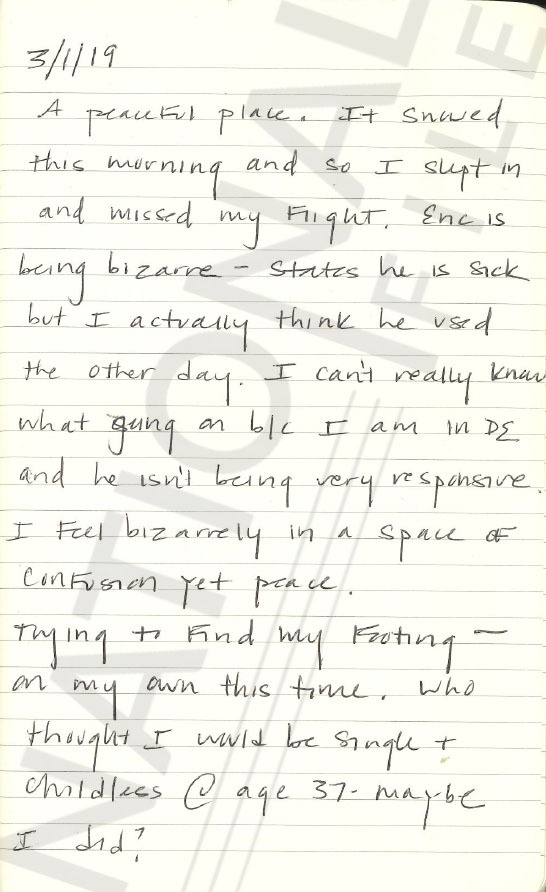 3/1/19
A peaceful place. It snowed
this morning and so I slept in
and missed my flight. Eric is
being bizarre - states he is sick
but I actually think he used
the other day. I can't really know
what going on b/c I am in DE
and he isn't being very responsive.
I feel bizarrely in a space of
confusion yet peace.
Trying to find my footing —
on my own this time. Who
thought I would be single +
childless @ age 37 - maybe
I did?
NATIONAL
FILE